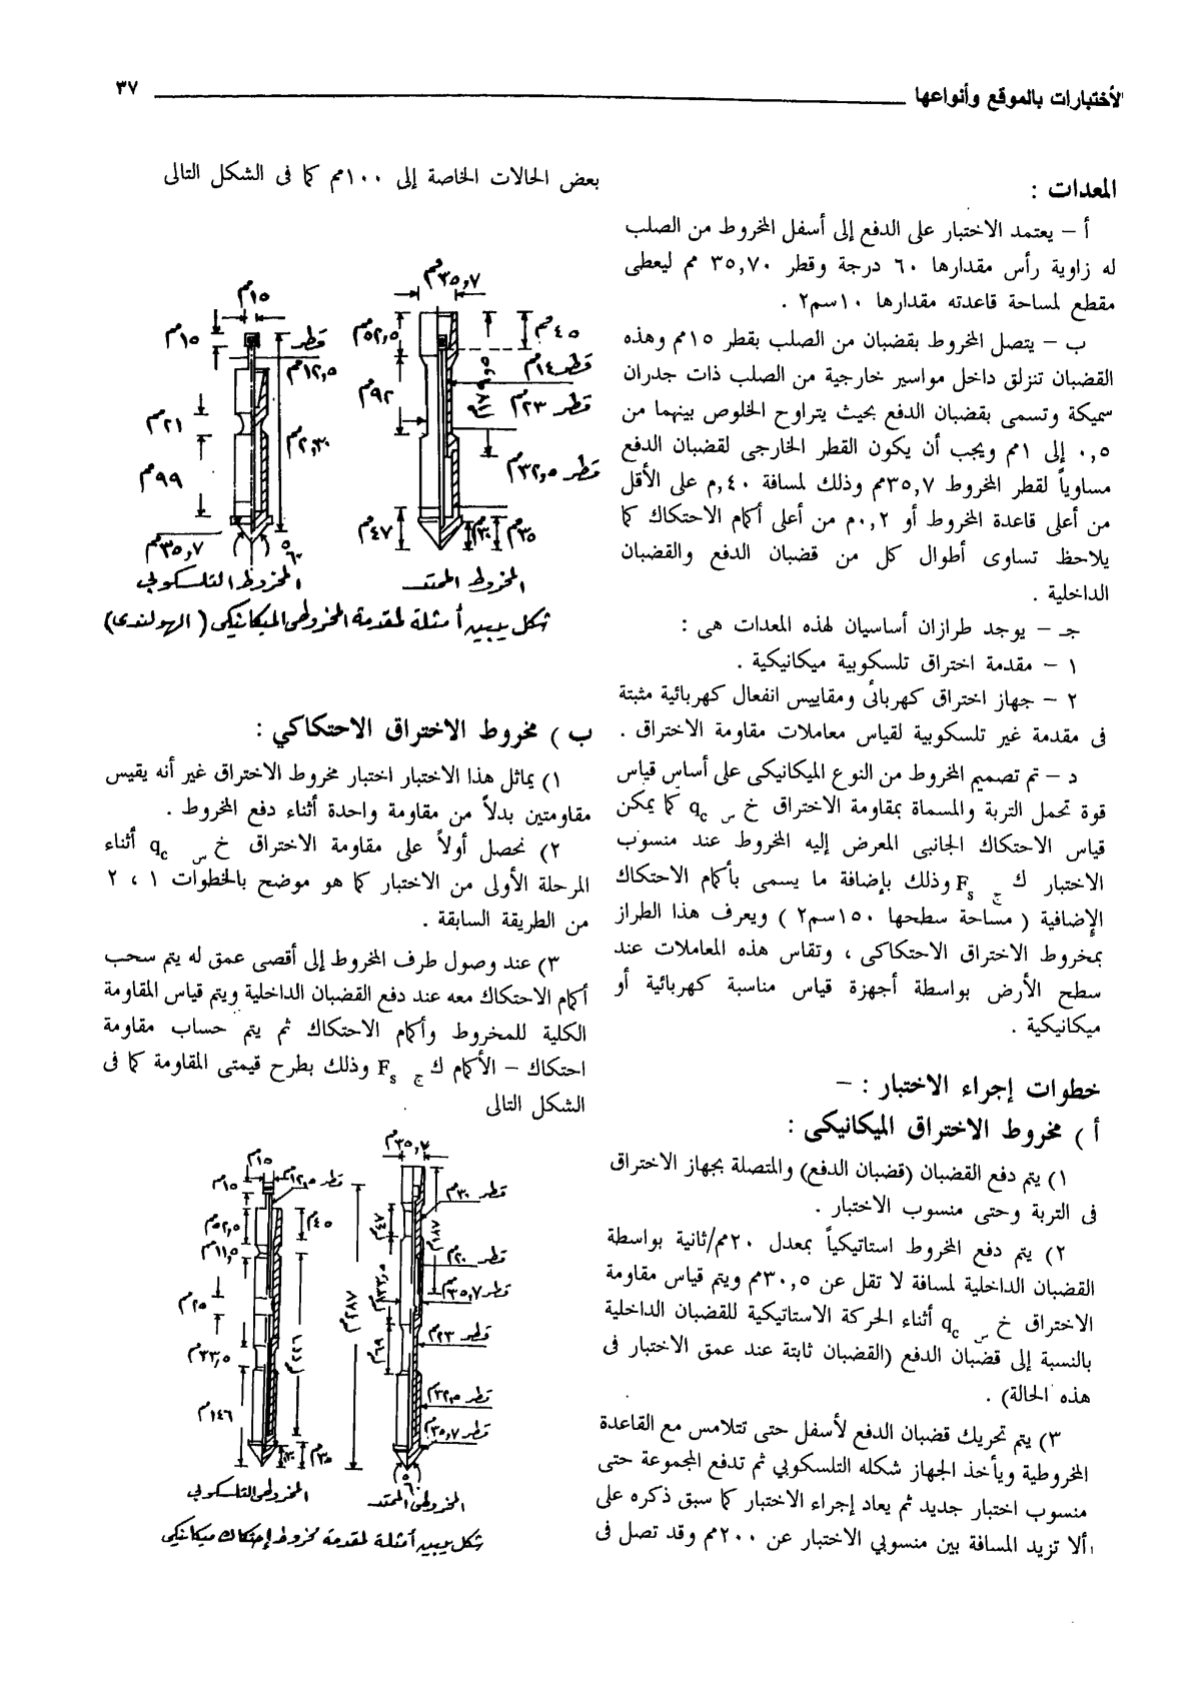 الأختبارات بالموقع وأنواعها
٣٧
المعدات :
أ – يعتمد الاختبار على الدفع إلى أسفل المخروط من الصلب
له زاوية رأس مقدارها ٦٠ درجة وقطر ٣٥,٧٠ مم ليعطى
مقطع لمساحة قاعدته مقدارها ١٠سم٢ .
ب – يتصل المخروط بقضبان من الصلب بقطر ١٥مم وهذه
القضبان تنزلق داخل مواسير خارجية من الصلب ذات جدران
سميكة وتسمى بقضبان الدفع بحيث يتراوح الخلوص بينهما من
٠,٥ إلى ١مم ويجب أن يكون القطر الخارجى لقضبان الدفع
مساوياً لقطر المخروط ٣٥,٧مم وذلك لمسافة ٠,٤٠م على الأقل
من أعلى قاعدة المخروط أو ٠,٢م من أعلى أكمام الاحتكاك كما
يلاحظ تساوى أطوال كل من قضبان الدفع والقضبان
الداخلية .
جـ – يوجد طرازان أساسيان لهذه المعدات هى :
١ – مقدمة اختراق تلسكوبية ميكانيكية .
٢ – جهاز اختراق كهربائى ومقاييس انفعال كهربائية مثبتة
فى مقدمة غير تلسكوبية لقياس معاملات مقاومة الاختراق .
د – تم تصميم المخروط من النوع الميكانيكى على أساس قياس
قوة تحمل التربة والمسماة بمقاومة الاختراق خ س qc كما يمكن
قياس الاحتكاك الجانبى المعرض إليه المخروط عند منسوب
الاختبار ك ج Fs وذلك بإضافة ما يسمى بأكمام الاحتكاك
الإضافية ( مساحة سطحها ١٥٠سم٢ ) ويعرف هذا الطراز
بمخروط الاختراق الاحتكاكى ، وتقاس هذه المعاملات عند
سطح الأرض بواسطة أجهزة قياس مناسبة كهربائية أو
ميكانيكية .
خطوات إجراء الاختبار : –
أ ) مخروط الاختراق الميكانيكى :
١) يتم دفع القضبان (قضبان الدفع) والمتصلة بجهاز الاختراق
فى التربة وحتى منسوب الاختبار .
٢) يتم دفع المخروط استاتيكياً بمعدل ٢٠مم/ثانية بواسطة
القضبان الداخلية لمسافة لا تقل عن ٣٠,٥مم ويتم قياس مقاومة
الاختراق خ س qc أثناء الحركة الاستاتيكية للقضبان الداخلية
بالنسبة إلى قضبان الدفع (القضبان ثابتة عند عمق الاختبار فى
هذه الحالة) .
٣) يتم تحريك قضبان الدفع لأسفل حتى تتلامس مع القاعدة
المخروطية ويأخذ الجهاز شكله التلسكوبي ثم تدفع المجموعة حتى
منسوب اختبار جديد ثم يعاد إجراء الاختبار كما سبق ذكره على
ألا تزيد المسافة بين منسوبي الاختبار عن ٢٠٠مم وقد تصل فى
بعض الحالات الخاصة إلى ١٠٠مم كما فى الشكل التالى
٣٥,٧مم
١٥مم
١٥مم
قطر
١٢,٥مم
٢١مم
٩٩مم
٣٥,٧مم
٥٢,٥مم
٤٥مم
قطر ١٤مم
٩٢مم
قطر ٢٣مم
قطر ٣٢,٥مم
٤٧مم
٣٠مم
٣٥مم
المخروط الممتد
المخروط التلسكوبي
شكل يبين أمثلة لمقدمة المخروط الميكانيكى ( الهولندى )
ب ) مخروط الاختراق الاحتكاكي :
١) يماثل هذا الاختبار اختبار مخروط الاختراق غير أنه يقيس
مقاومتين بدلاً من مقاومة واحدة أثناء دفع المخروط .
٢) نحصل أولاً على مقاومة الاختراق خ س qc أثناء
المرحلة الأولى من الاختبار كما هو موضح بالخطوات ١ ، ٢
من الطريقة السابقة .
٣) عند وصول طرف المخروط إلى أقصى عمق له يتم سحب
أكمام الاحتكاك معه عند دفع القضبان الداخلية ويتم قياس المقاومة
الكلية للمخروط وأكمام الاحتكاك ثم يتم حساب مقاومة
احتكاك – الأكمام ك ج Fs وذلك بطرح قيمتى المقاومة كما فى
الشكل التالى
٣٥,٧مم
١٥مم
١٥مم
قطر ١٢,٥مم
قطر ٣٠مم
٥٢,٥مم
٤٥مم
١١,٥مم
قطر ٢٠مم
قطر ٣٥,٧مم
٢٥مم
قطر ٢٣مم
٣٣,٥مم
قطر ٣٢,٥مم
١٤٦مم
قطر ٣٥,٧مم
٣٥مم
المخروط الممتد
المخروط التلسكوبي
شكل يبين أمثلة لمقدمة مخروط إحتكاك ميكانيكى